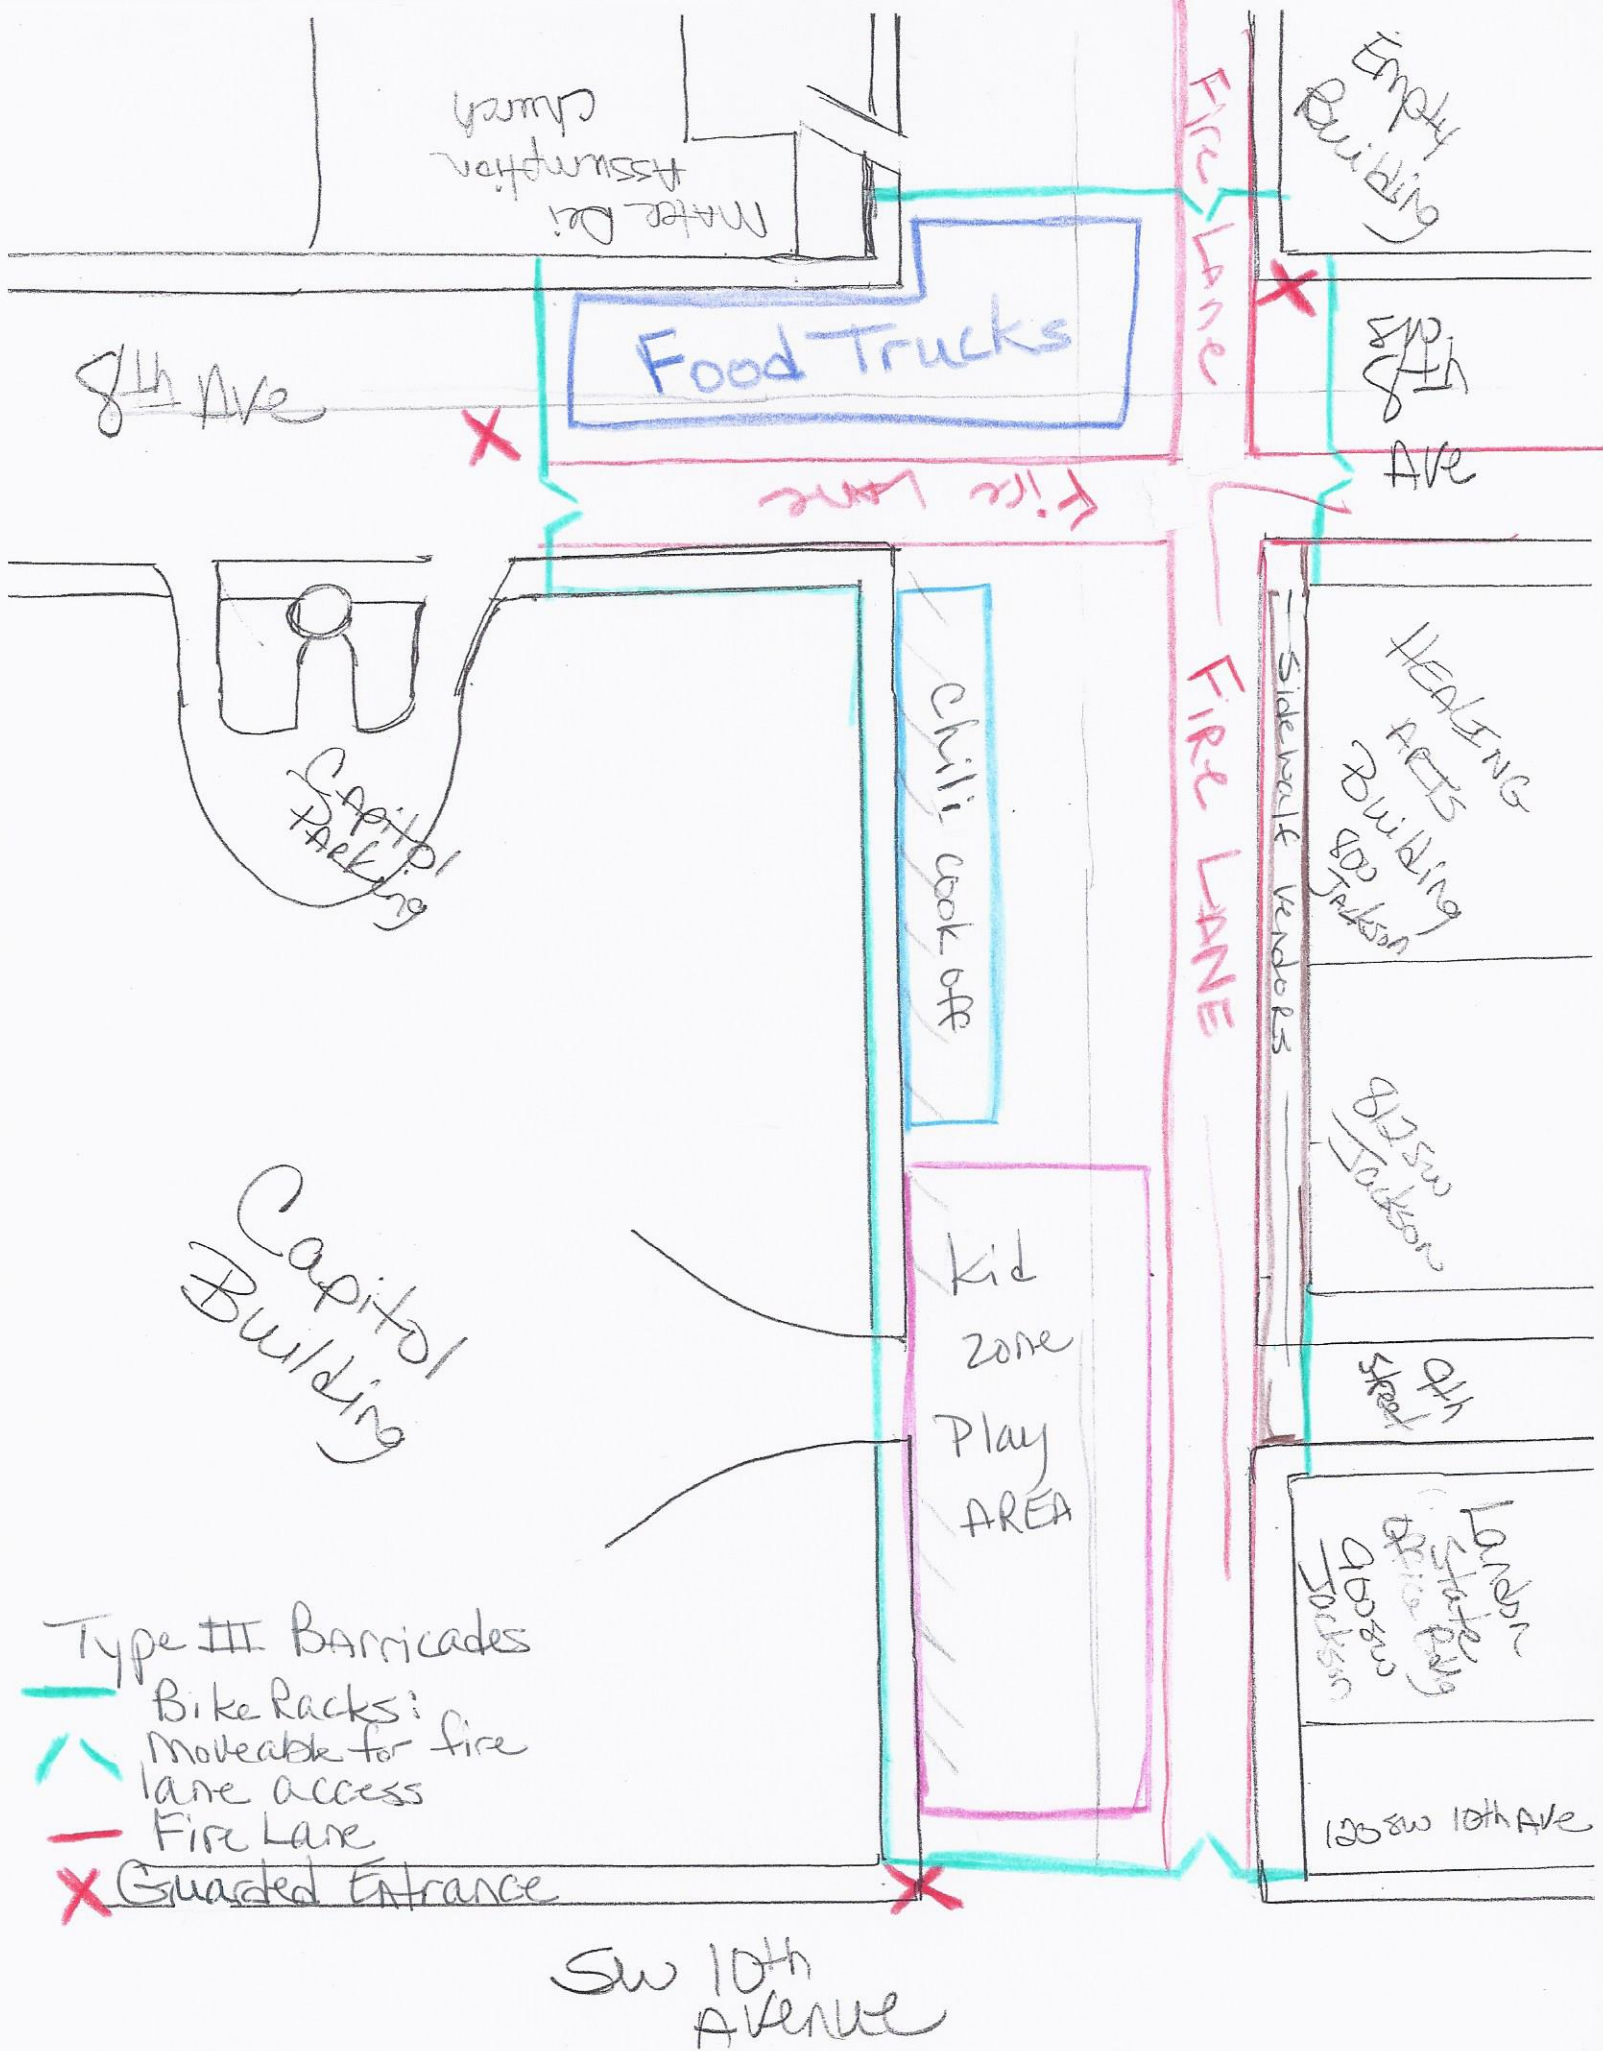 Mater Dei
Assumption
Church
Fire Lane
Empty
Building
8th Ave
Food Trucks
8th
Ave
Fire Lane
Capitol
Parking
Chili cook off
FIRE LANE
Sidewalk Vendors
HEALING
ARTS
Building
800
Jackson
812 SW
Jackson
Capitol
Building
Kid
Zone
Play
AREA
9th
Street
Landon
State
Office Bldg
900 SW
Jackson
120 SW 10th Ave
Type III Barricades
Bike Racks:
Moveable for fire
lane access
Fire Lane
Guarded Entrance
SW 10th
Avenue